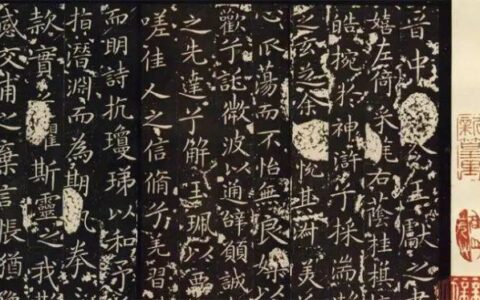 晉中令王獻之
嬉左倚采旄右蔭桂棋
皓捥於神滸兮採湍
之玄芝余悅其淑美
心振蕩而不怡無良媒以
歡兮託微波以通辭願誠
之先達兮解玉珮以要
嗟佳人之信脩兮羌習
而明詩抗瓊珶以和予
指潛淵而為期執拳
款實懼斯靈之我
感交甫之棄言悵猶